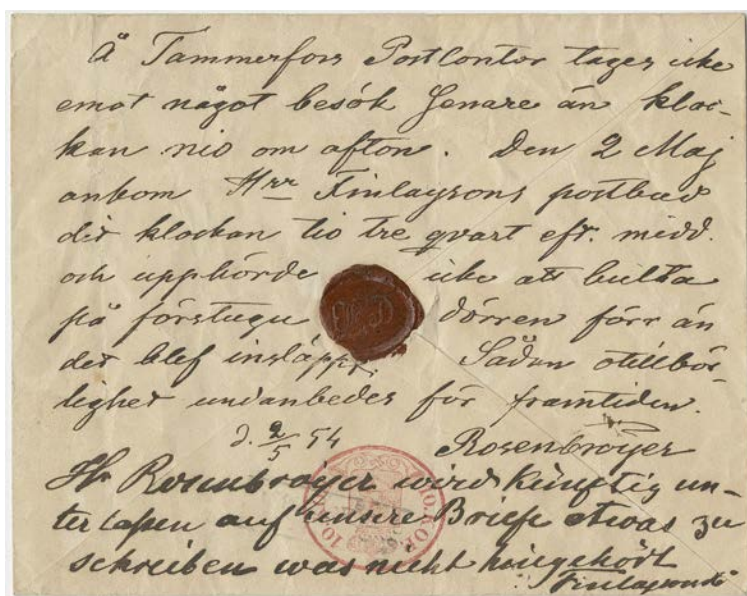 Å Tammerfors Postcontor tages icke
emot något besök senare än kloc-
kan nio om afton. Den 2 Maj
ankom Hrr Finlaysons postbud
dit klockan tio tre qvart eft. midd.
och upphörde icke att bulta
på förstugu dörren förr än
det blef insläppt. Sådan otillbör-
lighet undanbedes för framtiden.
d. 2/5 54 Rosenbröijer
Hr Rosenbröijer wird künftig un-
terlassen auf unsere Briefe etwas zu
schreiben was nicht hingehört
Finlaysons
10 KOP. 10